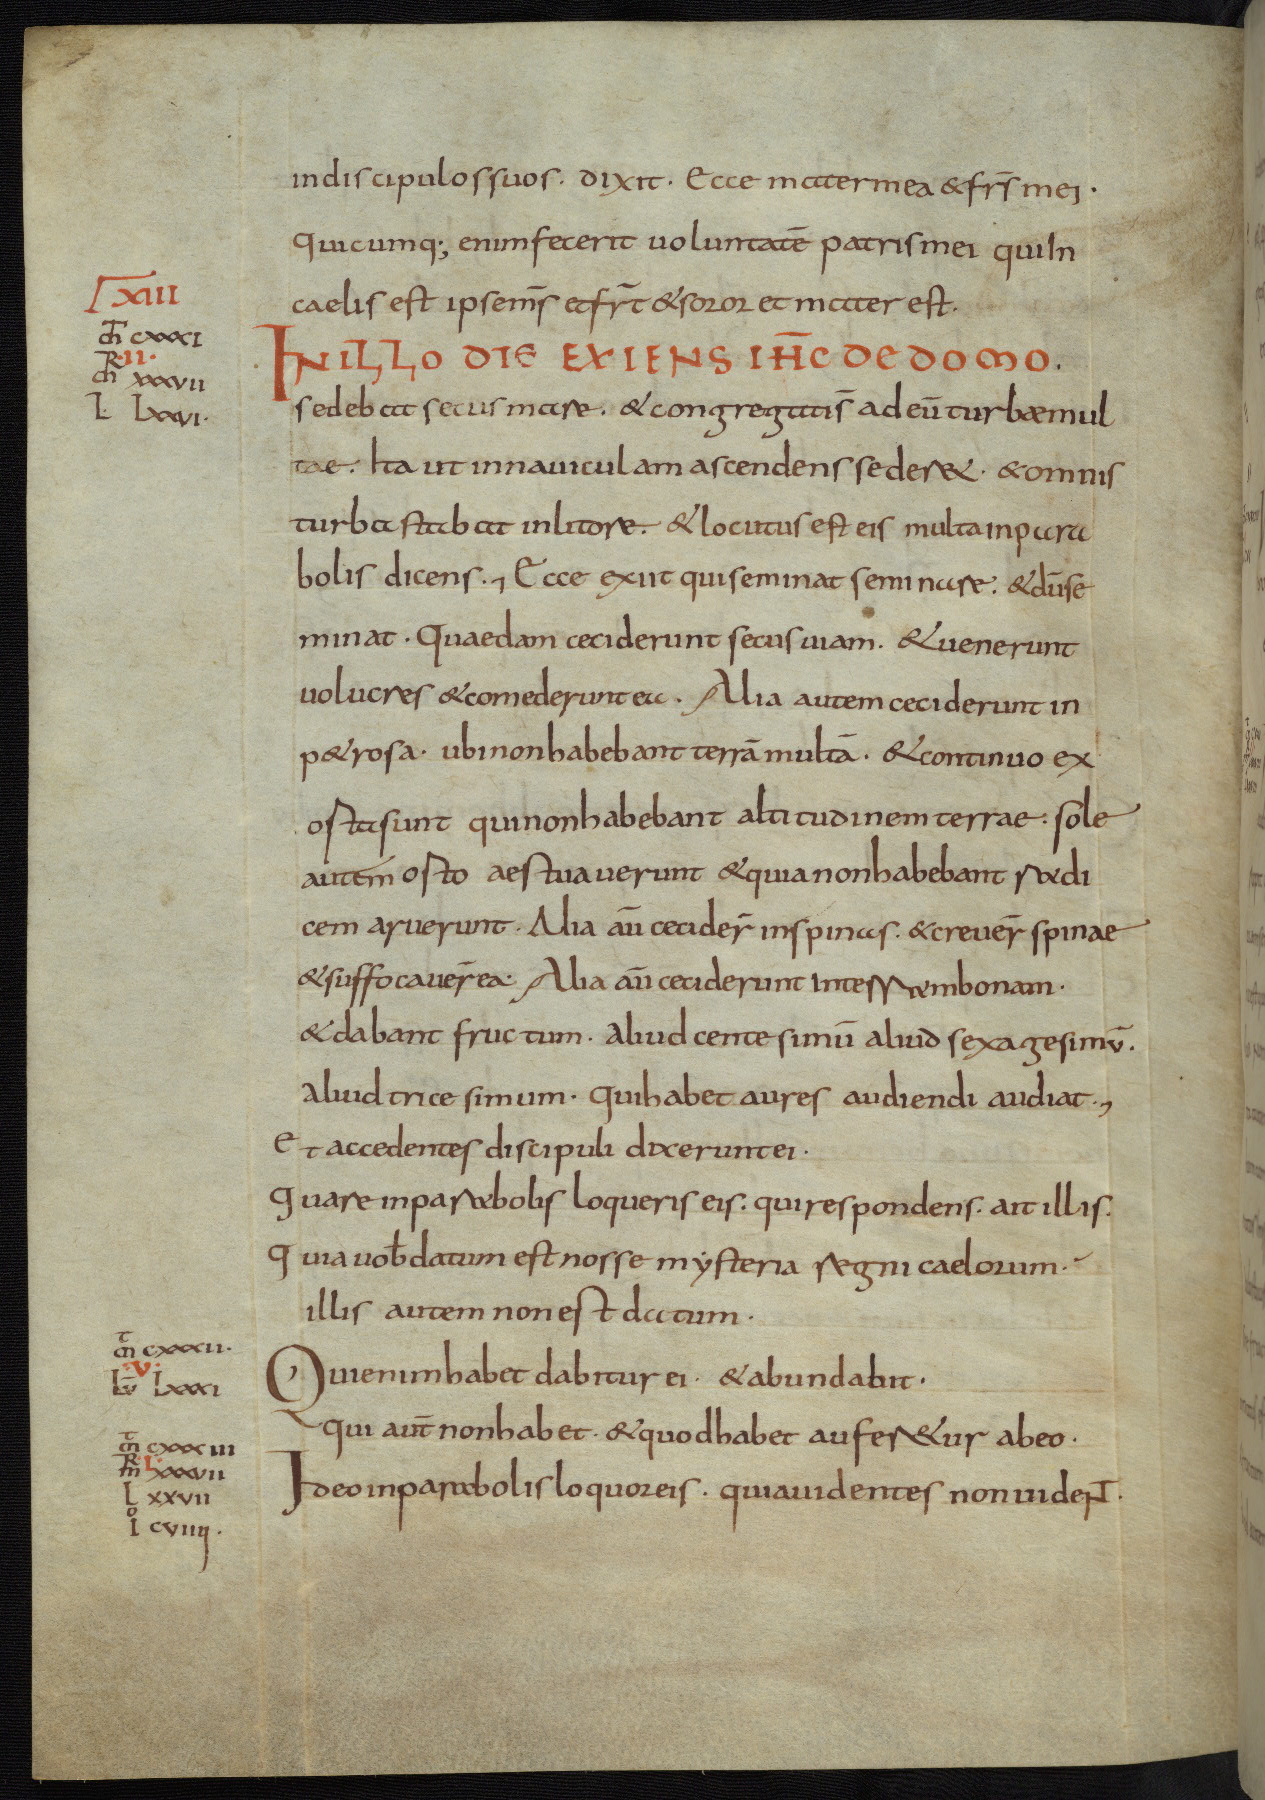 indiscipulossuos. dixit. Ecce matermea &fr̄s mei.
Quicumq; enimfecerit uoluntatē patrismei quiIn
caelis est ipsem̄s etfr̄t &soror et mater est.
XIII
m̄t CXXXI
R II
m̄ XXXVII
L LXXVI.
INILLO DIE EXIENS IH̄C DE DOMO.
sedebat secus mare. &congregatis̄ ad eū turbaemul
tae. Ita ut innauiculam ascendens seder&. &omnis
turba stabat inlitore. &locutus est eis multa inpara
bolis dicens., Ecce exiit qui seminat seminare. &dūse
minat. Quaedam ceciderunt secusuiam. &uenerunt
uolucres &comederunt ea. Alia autem ceciderunt in
p&rosa. ubinonhabebant terrā multā. &continuo ex
ortasunt quinonhabebant altitudinem terrae. sole
autem orto aestuauerunt &quianonhabebant radi
cem aruerunt. Alia aū cecider̄ inspinas. &creuer̄ spinae
&suffocauer̄ ea. Alia aū ceciderunt interrambonam.
&dabant fructum. aliud centesimū aliud sexagesimū.
aliud tricesimum. Quihabet aures audiendi audiat.,
Et accedentes discipuli dixeruntei.
Quare inparabolis loqueris eis. qui respondens. ait illis.
Quia uob̄ datum est nosse mẏsteria regni caelorum.
illis autem non est datum.
m̄t CXXXII.
V
Lū LXXXI
Quienimhabet dabitur ei. &abundabit.
qui aut̄ nonhabet. &quodhabet aufer&ur abeo.
m̄t CXXXIII
R I
m̄ XXXVII
L XXVII
Io CVIIII.
Ideo inparabolis loquoreis. quiauidentes non uident.